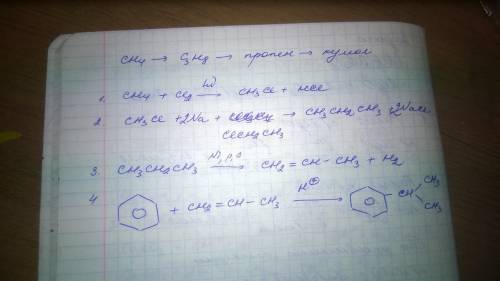 CH4 → C3H8 → пропен → кумол
1. CH4 + Cl2 hν → CH3Cl + HCl
2. CH3Cl + 2Na + → CH3CH2CH3 + 2NaCl
ClCH2CH3
3. CH3CH2CH3 Ni, p, t → CH2 = CH - CH3 + H2
4. + CH2 = CH - CH3 H⊕ → CH CH3 CH3